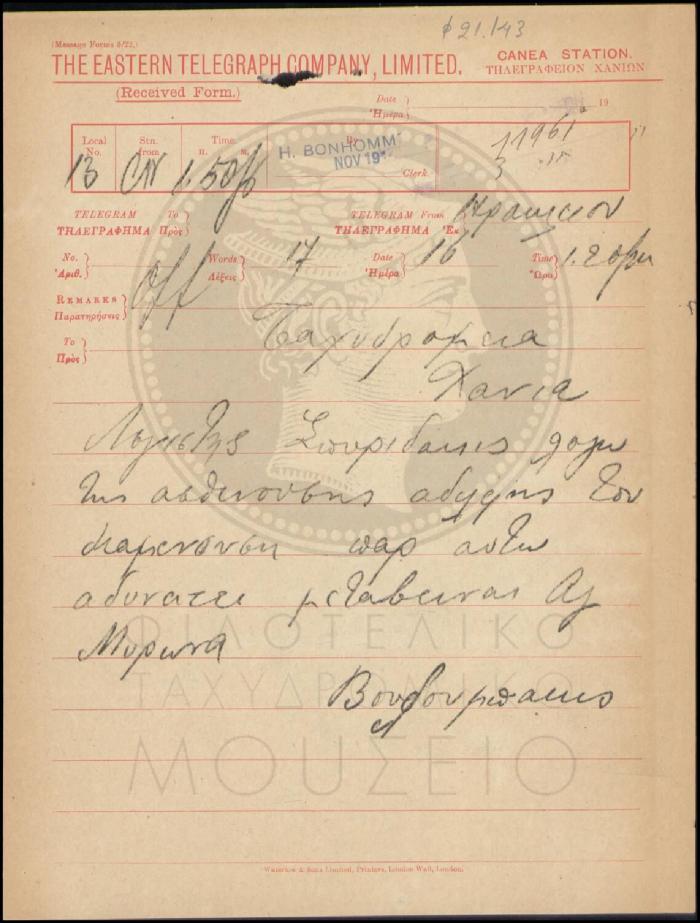 φ 21./43
(Message Forms 8/22.)
THE EASTERN TELEGRAPH COMPANY, LIMITED.
CANEA STATION.
ΤΗΛΕΓΡΑΦΕΙΟΝ ΧΑΝΙΩΝ
(Received Form.)
Date
Ἡμέρα
19
Local No.
Stn. from
Time.
π. μ.
By
Clerk.
13 CN 1.50
H. BONHOMM
NOV 19
11961
TELEGRAM To
ΤΗΛΕΓΡΑΦΗΜΑ Πρὸς
TELEGRAM From
ΤΗΛΕΓΡΑΦΗΜΑ Ἐκ
Ηρακλειον
No.
Ἀριθ.
Words
Λέξεις
17
Date
Ἡμέρα
16
Time
Ὥρα
1.20
REMARKS
Παρατηρήσεις
Off
To
Πρὸς
Ταχυδρομεια
Χανια
Λογιστης Σπυριδακις λογω
της ασθενουσης αδελφης του
διαμενουση παρ αυτω
αδυνατει μεταβειναι Αγ
Μυρωνα
Βουδουμπακις
ΦΙΛΟΤΕΛΙΚΟ
ΤΑΧΥΔΡΟΜΙΚΟ
ΜΟΥΣΕΙΟ
Waterlow & Sons Limited, Printers, London Wall, London.